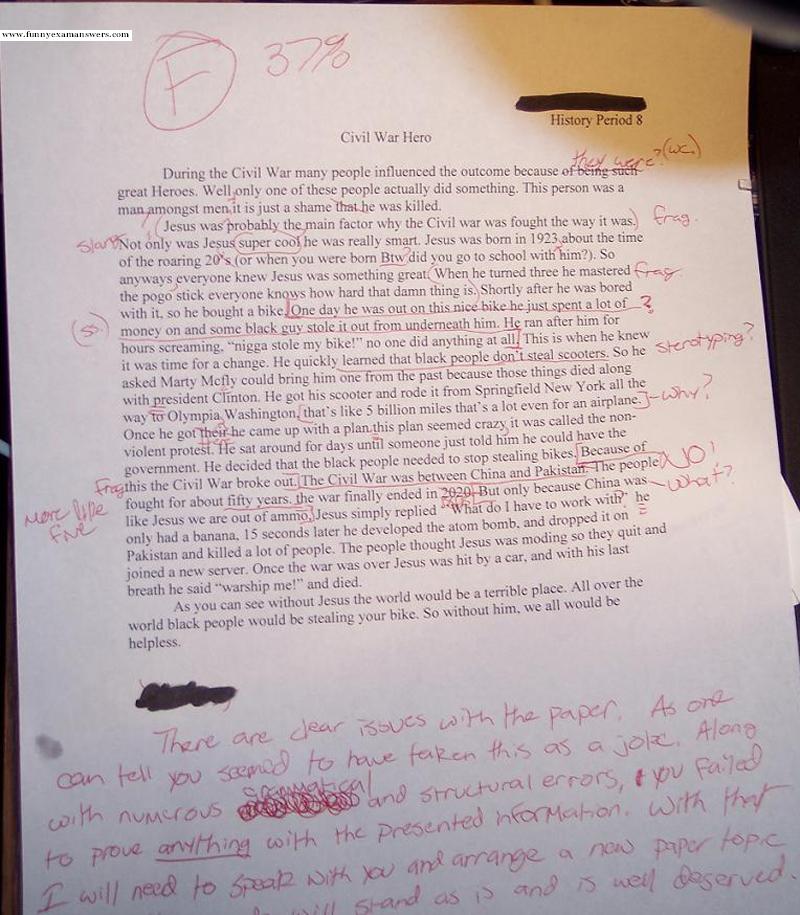 www.funnyexamanswers.com
F 37%
History Period 8
Civil War Hero
they were? (wc.)
During the Civil War many people influenced the outcome because of being such
great Heroes. Well only one of these people actually did something. This person was a
man amongst men it is just a shame that he was killed.
Jesus was probably the main factor why the Civil war was fought the way it was. frag.
slang Not only was Jesus super cool he was really smart. Jesus was born in 1923 about the time
of the roaring 20's (or when you were born Btw did you go to school with him?). So
anyways everyone knew Jesus was something great. When he turned three he mastered frag.
the pogo stick everyone knows how hard that damn thing is. Shortly after he was bored
with it, so he bought a bike. One day he was out on this nice bike he just spent a lot of ?
money on and some black guy stole it out from underneath him. He ran after him for
hours screaming, “nigga stole my bike!” no one did anything at all. This is when he knew
it was time for a change. He quickly learned that black people don't steal scooters. So he sterotyping?
asked Marty Mcfly could bring him one from the past because those things died along
with president Clinton. He got his scooter and rode it from Springfield New York all the
way to Olympia Washington, that's like 5 billion miles that's a lot even for an airplane. - why?
Once he got their he came up with a plan, this plan seemed crazy it was called the non-
violent protest. He sat around for days until someone just told him he could have the
government. He decided that the black people needed to stop stealing bikes. Because of
Frag this the Civil War broke out. The Civil War was between China and Pakistan. The people NO!
fought for about fifty years. the war finally ended in 2020. But only because China was what?
More like
five
like Jesus we are out of ammo, Jesus simply replied “What do I have to work with” he
only had a banana, 15 seconds later he developed the atom bomb, and dropped it on
Pakistan and killed a lot of people. The people thought Jesus was moding so they quit and
joined a new server. Once the war was over Jesus was hit by a car, and with his last
breath he said “warship me!” and died.
As you can see without Jesus the world would be a terrible place. All over the
world black people would be stealing your bike. So without him, we all would be
helpless.
There are clear issues with the paper. As one
can tell you seemed to have taken this as a joke. Along
with numerous grammatical and structural errors, & you failed
to prove anything with the presented information. With that
I will need to speak with you and arrange a new paper topic
will stand as is and is well deserved.